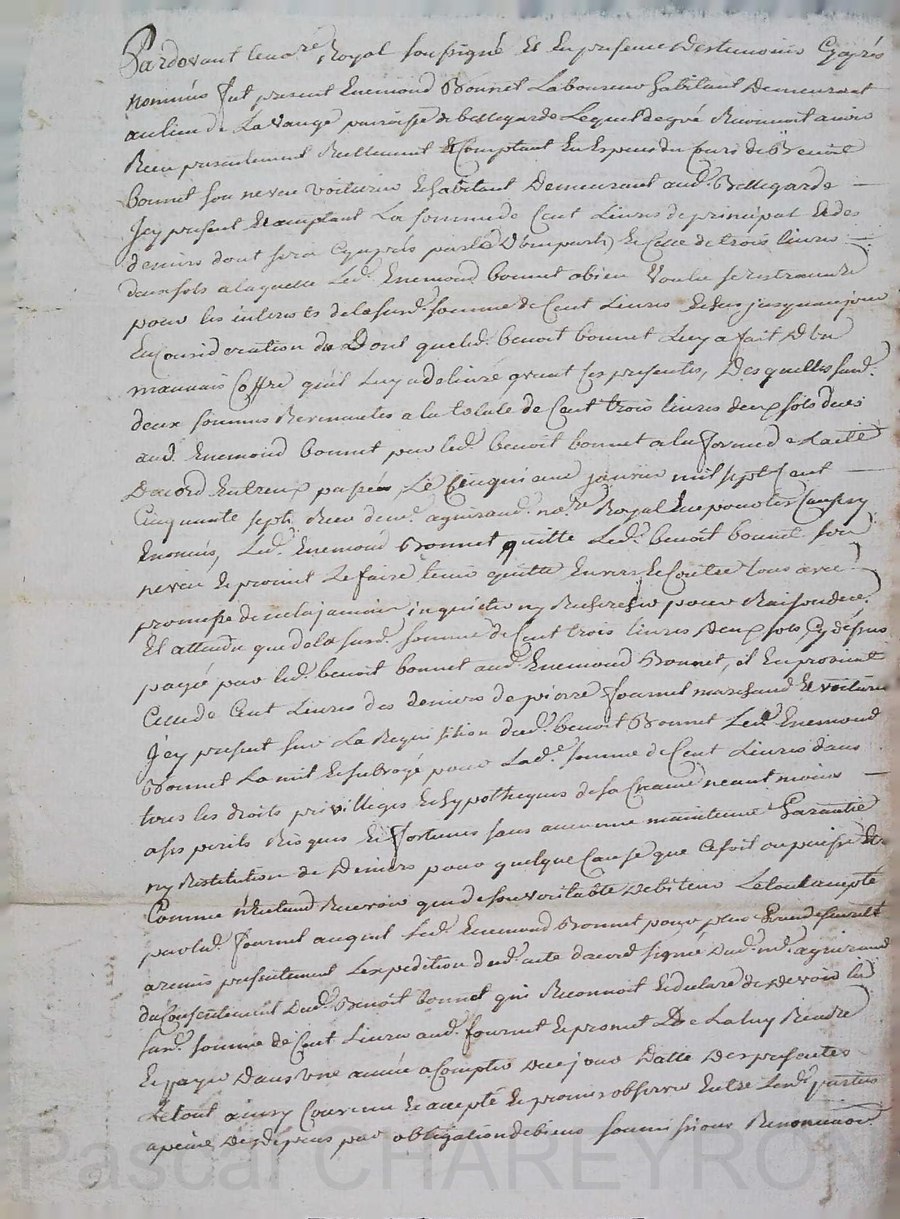 Pardevant le no.re Royal soussigné Et En presence des temoins Cyaprés
nommés fut present Enemond Bonnet Laboureur habitant Demeurant
au lieu de La paroisse de bellegarde Lequel de gré Reconnoit avoir
Receu presentement Reellement Et Comptant En Especes du Cours de Benoit
bonnet son neveu voiturier Et habitant Demeurant aud. Bellegarde
Jcy present Et acceptant La somme de Cent Livres de principal Et des
deniers dont sera Cyaprés parlé d'une part, Et Celle de trois livres
deux sols a laquelle Led. Enemond bonnet a bien voulu se restraindre
pour les interets de la susd. somme de Cent Livres Echus jusqu'au jour
En Consideration du Don que led. benoit bonnet Luy a fait D'un
mauvais Coffre qu'il Luy a delivré avant Ces presentes, Desquelles susd.
deux sommes Revenantes a la totale de Cent trois livres deux sols dues
aud. Enemond bonnet par led. benoit bonnet a la forme de L'acte
D'acord Entreux passé, Le Cinquieme janvier mil sept Cent
Cinquante sept, Receu de m.e aguiraud no.re Royal
Led. Enemond Bonnet quitte Led. benoit bonnet son
neveu Et promet Le faire tenir quitte Envers Et Contre tous avec
promesse de ne la jamais inquieter ny Rechercher pour Raison d'ice.
Et attendu que de la susd. somme de Cent trois livres Deux sols Cy dessus
payée par led. benoit bonnet aud. Enemond Bonnet, il En provient
Celle de Cent Livres des deniers de pierre fournel marchand Et voiturier
Jcy present sur La Requisition dud. benoit Bonnet Led. Enemond
Bonnet La mit Et subrogé pour Lad.e somme de Cent Livres dans
tous les droits privilleges Et hypotheques de sa Creance neantmoins
a ses perils Risques Et fortunes sans aucune maintenue Garantie
ny Restitution de Deniers pour quelque Cause que Ce soit ou puisse Etre
Comme n'Entend Recevoir que de son veritable Debiteur Le tout accepté
par led. fournel auquel Led. Enemond Bonnet pour plus Grande seureté
a remis presentement L'expedition dud. acte d'acord signé dud. m.e aguiraud
du Consentement dud. Benoit bonnet qui Reconnoit Et declare devoir la
susd. somme de Cent Livres aud. fournel Et promet De La luy Rendre
Et payer Dans une année a Compter de ce jour Datte Des presentes
Le tout ainsy Convenu Et accepté Et promis observer Entre Lesd. parties
a peine De Depens par obligation de biens soumissions Renonciaon.
Pascal CHAREYRON